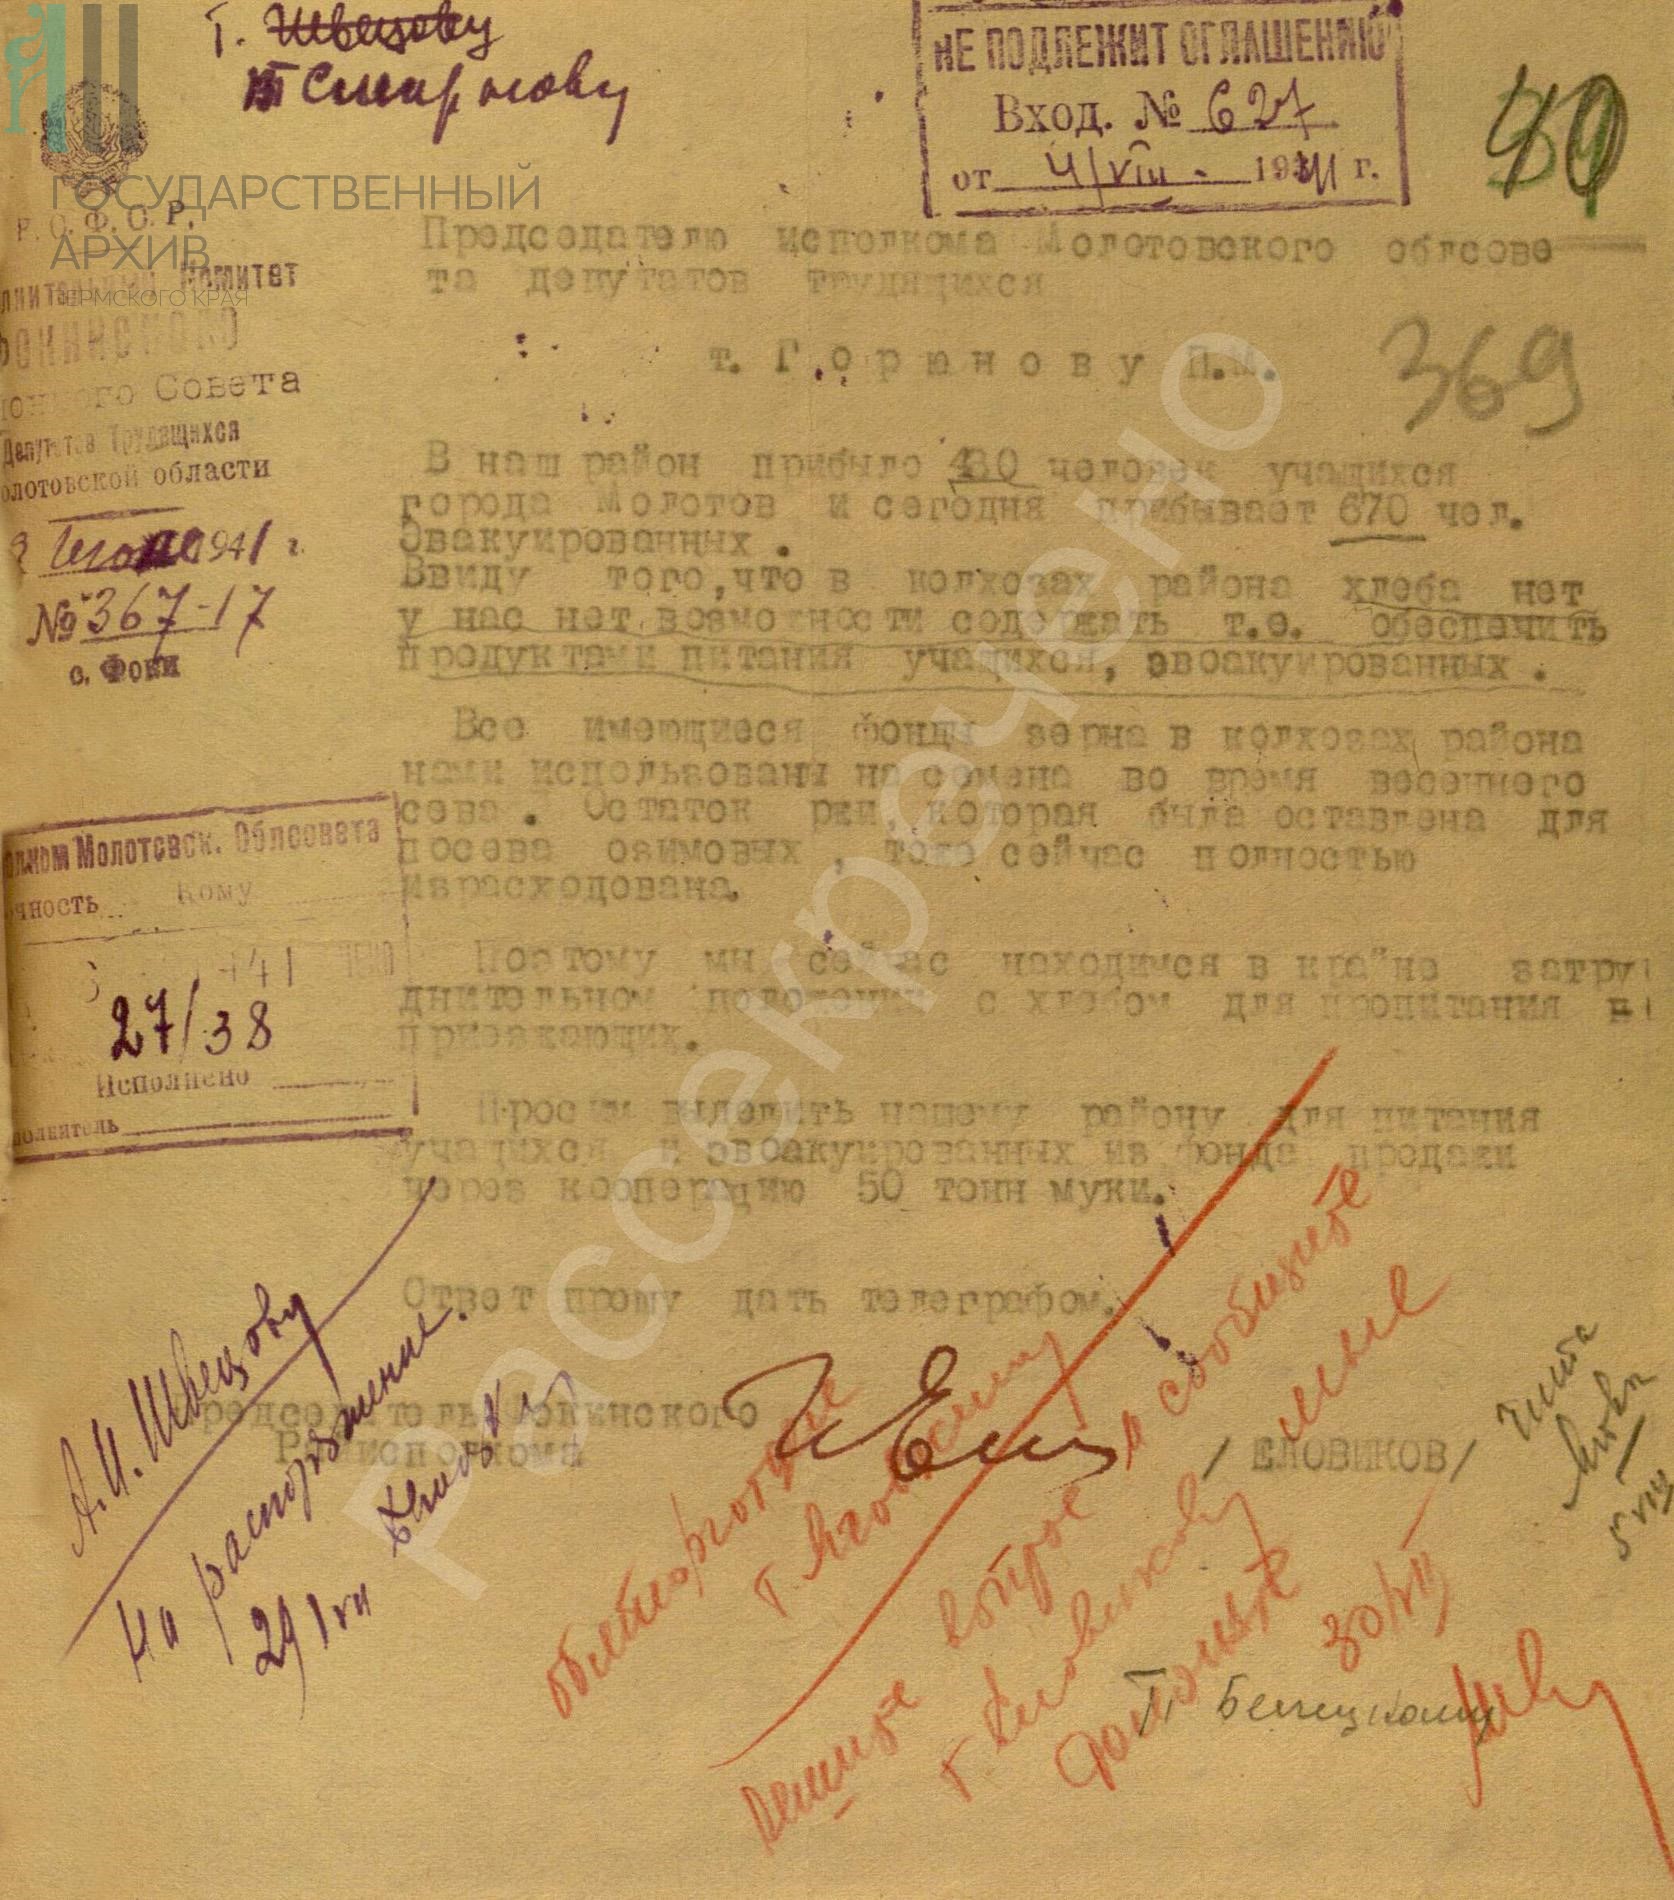 т. Швецову
т Смирнову
НЕ ПОДЛЕЖИТ ОГЛАШЕНИЮ
Вход. № 627
от 4/VIII - 1941 г.
40
ГОСУДАРСТВЕННЫЙ
АРХИВ
ПЕРМСКОГО КРАЯ
Р.С.Ф.С.Р.
лнительный Комитет
Фокинского
йонного Совета
Депутатов Трудящихся
олотовской области
1941 г.
№ 367-17
с. Фоки
Председателю исполкома Молотовского облсове
та депутатов трудящихся
т. Г о р ю н о в у П.М.
369
В наш район прибыло 430 человек учащихся
города Молотов и сегодня прибывает 670 чел.
Эвакуированных .
Ввиду того,что в колхозах района хлеба нет
у нас нет возможности содержать т.е. обеспечить
продуктами питания учащихся, эвоакуированных .
Все имеющиеся фонды зерна в колхозах района
нами использованы на семена во время весеннего
сева . Остаток ржи, которая была оставлена для
посева озимовых , тоже сейчас полностью
израсходована.
Поэтому мы сейчас находимся в крайне затру
днительном положении с хлебом для пропитания
приезжающих.
Просим выделить нашему району для питания
учащихся и эвоакуированных из фонда продажи
через кооперацию 50 тонн муки.
Ответ прошу дать телеграфом.
олком Молотовск. Облсовета
чность Кому
27/38
Исполнено
полнитель
Председатель Фокинского
Райисполкома
/ ЕЛОВИКОВ/
А.И. Швецову
На распоряжение.
29/VII
облторготдел
решите вопрос и сообщите
т. Еловикову
мне
30/VII
Т. Белецкому
5 VIII
Рассекречено